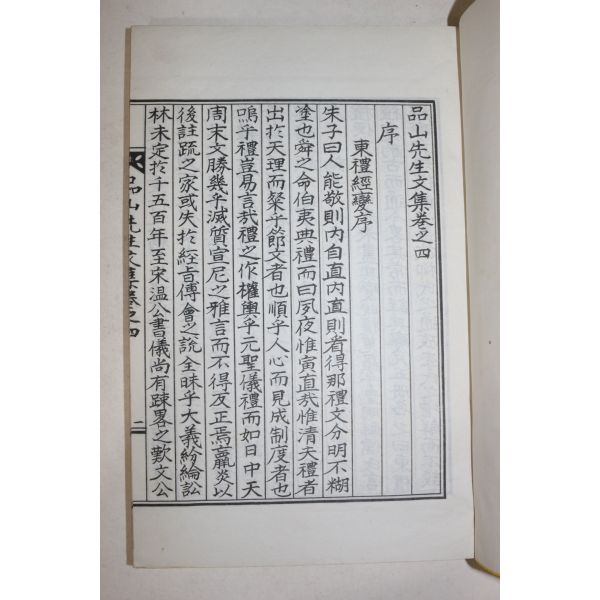 品山先生文集卷之四
序
東禮經變序
朱子曰人能敬則內自直內直則看得那禮文分明不糊
塗也舜之命伯夷典禮而曰夙夜惟寅直哉惟清夫禮者
出於天理而粲乎節文者也順乎人心而見成制度者也
嗚乎禮豈易言哉禮之作權輿乎元聖儀禮而如日中天
周末文勝幾乎滅質宣尼之雅言而不得反正焉嬴炎以
後註疏之家或失於經旨傅會之說全昧乎大義紛綸訟
林未定於千五百年至宋溫公書儀尚有踈畧之歎文公
品山先生文集卷之四